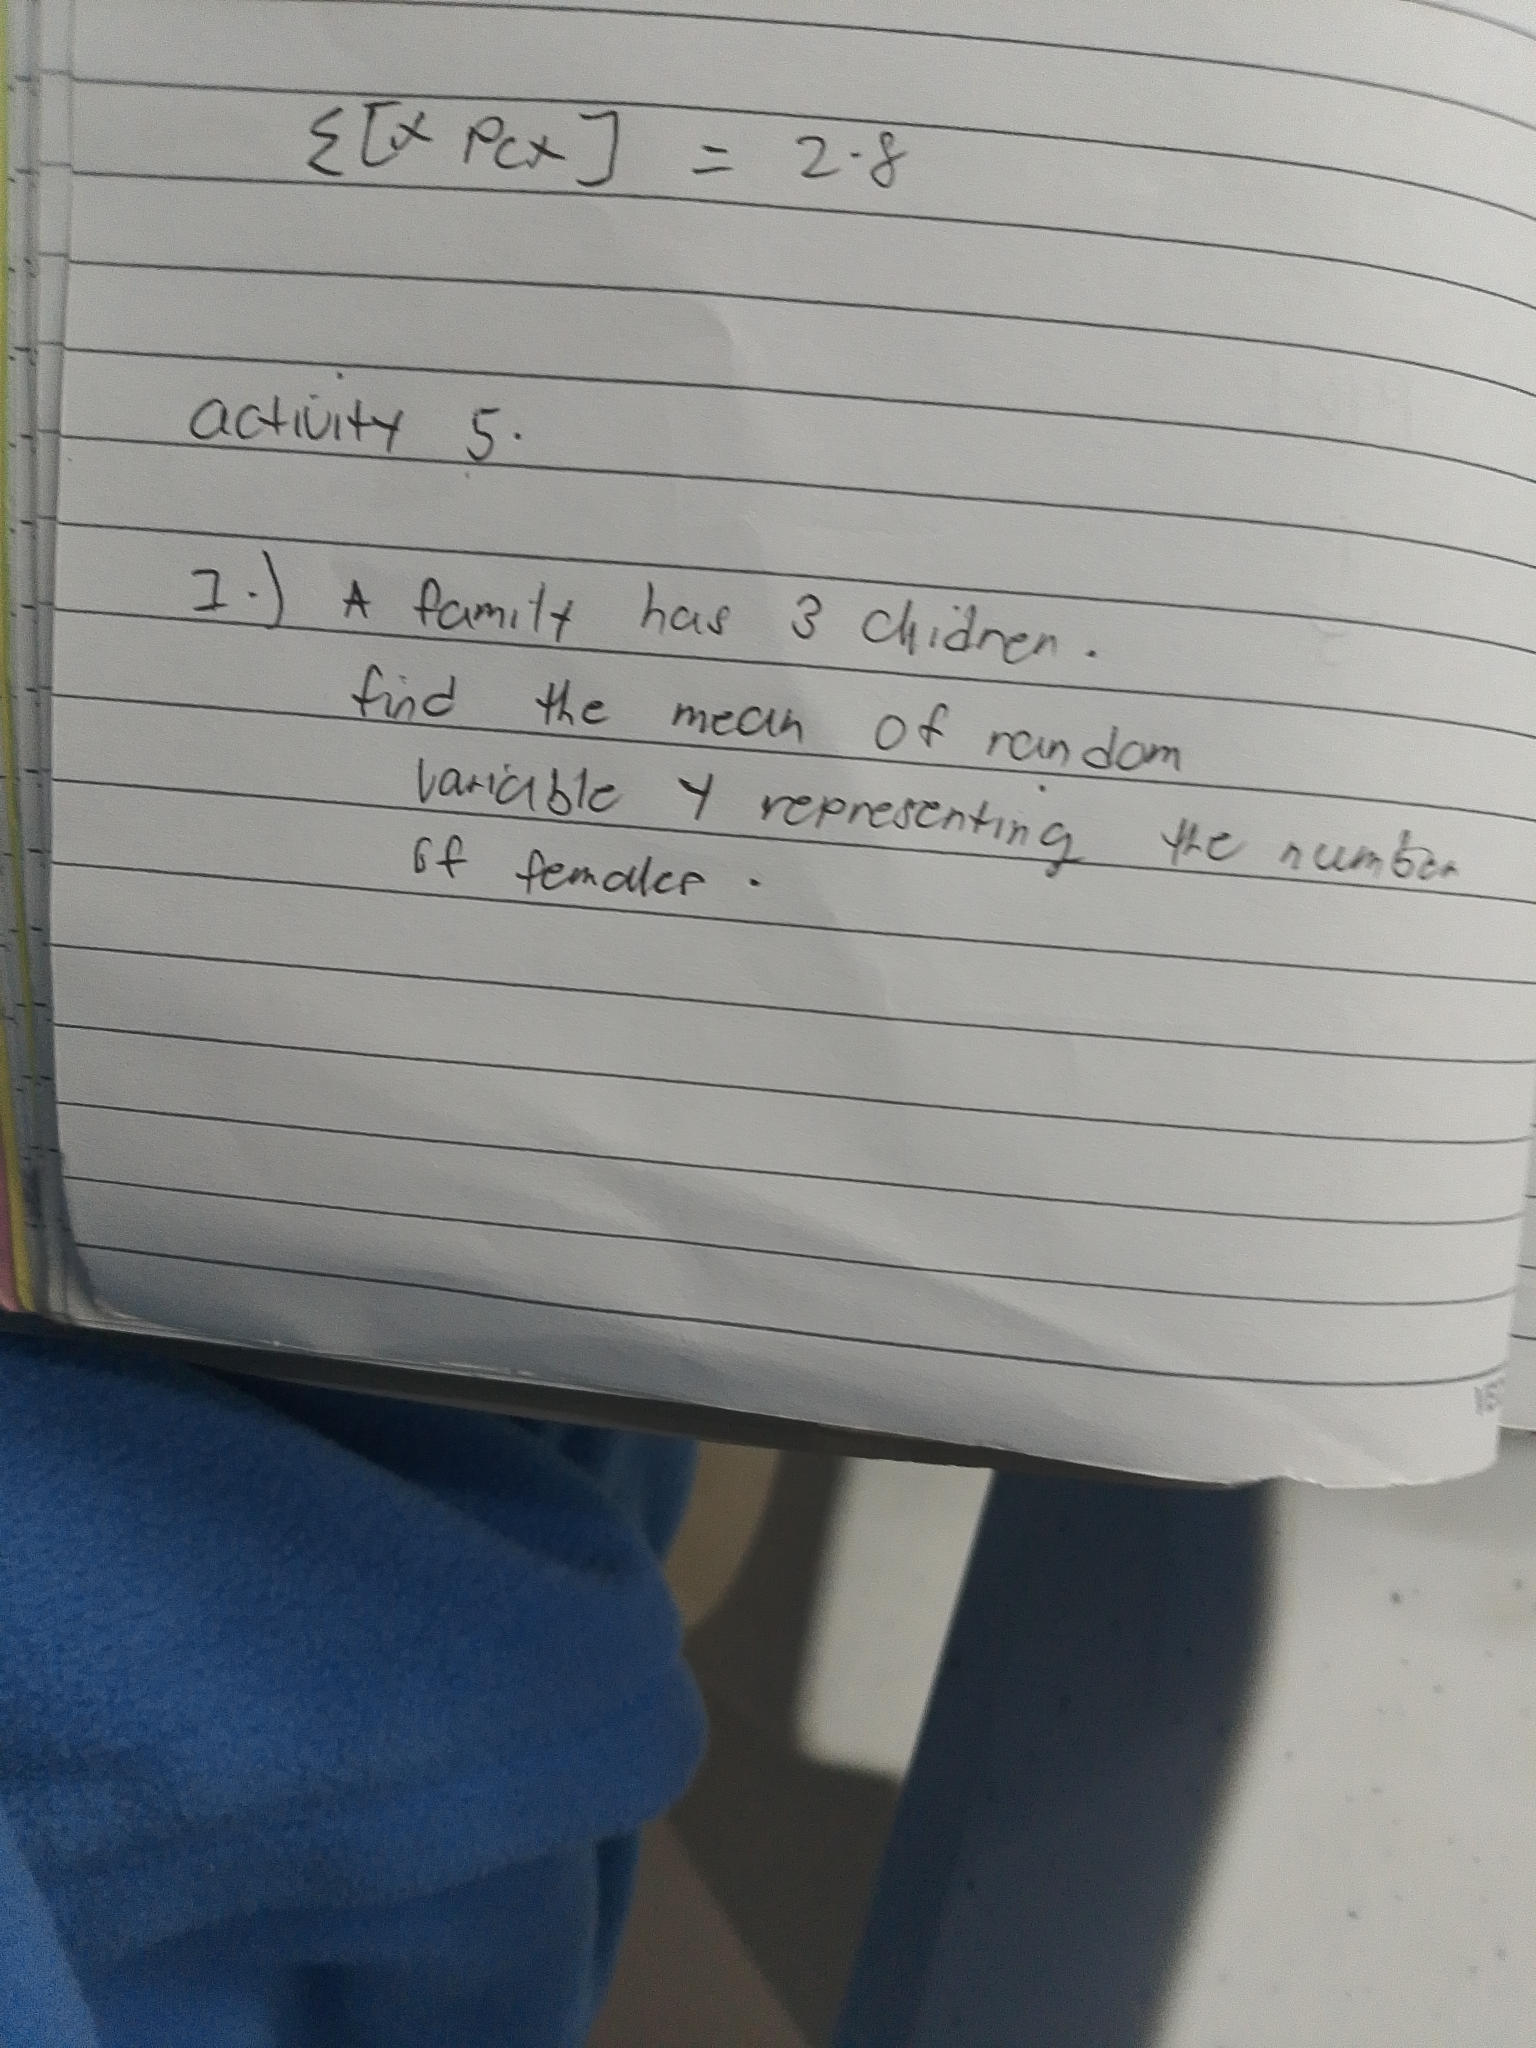 Σ[x P(x] = 2.8
activity 5.
I.) A family has 3 Chidren.
find the mean of random
variable y representing the number
of females.